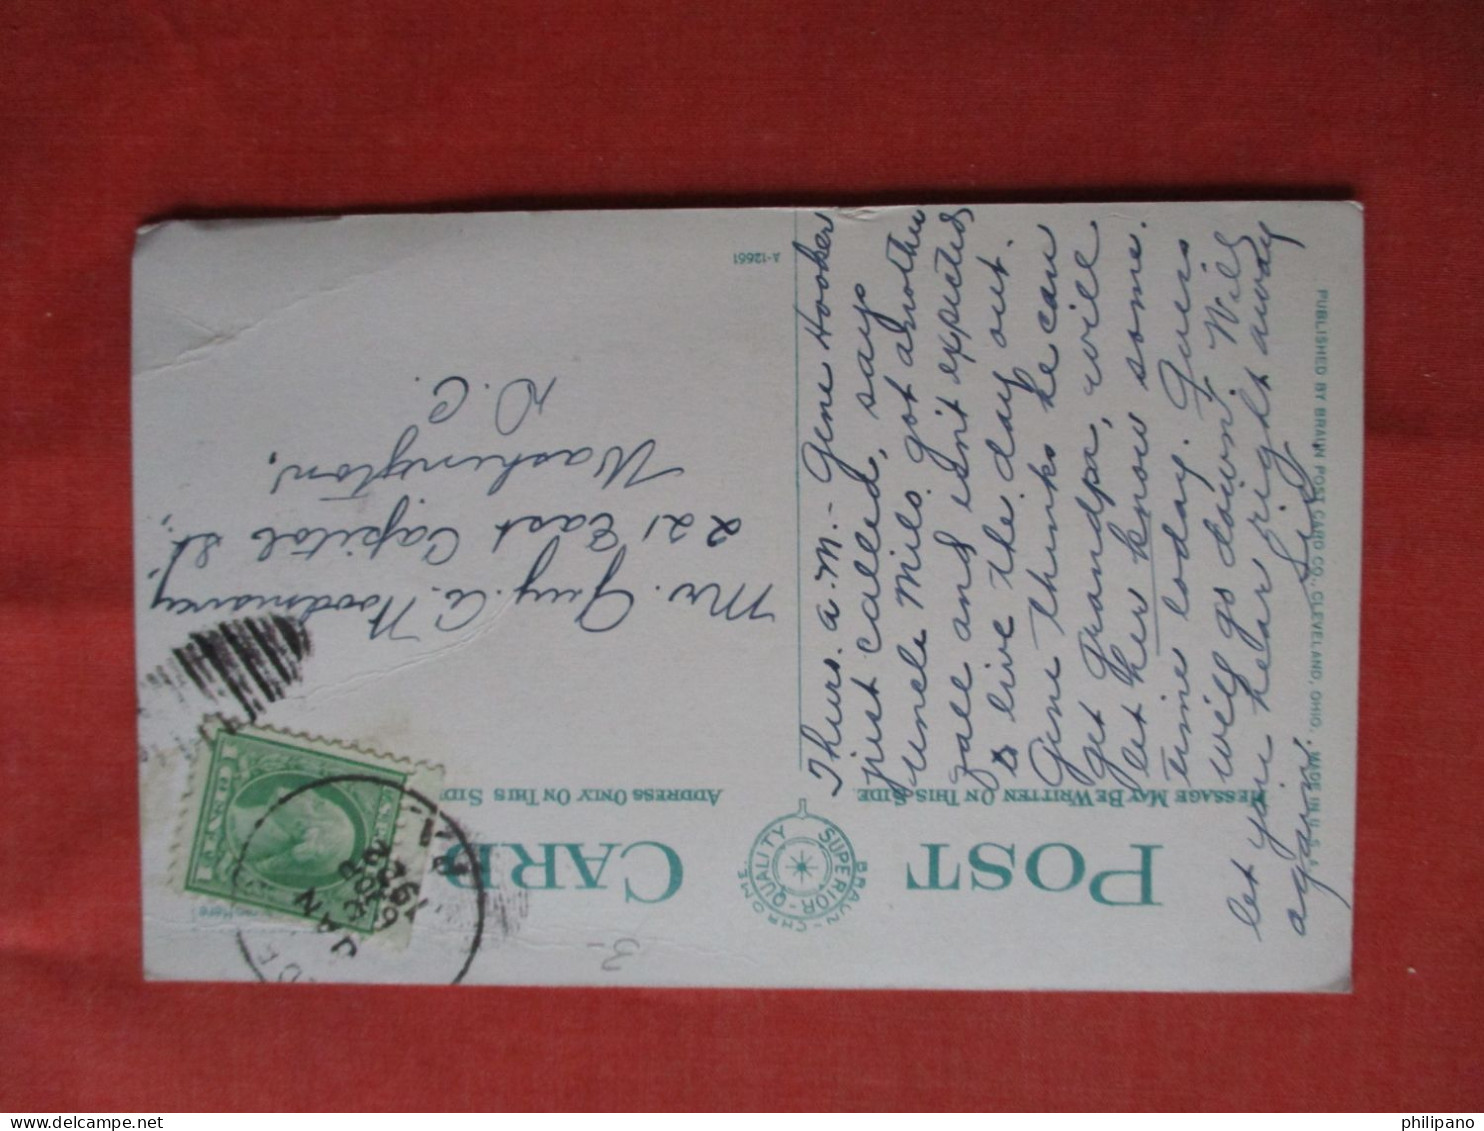 POST CARD
BRAUN-CHROME
QUALITY SUPERIOR
MESSAGE MAY BE WRITTEN ON THIS SIDE
ADDRESS ONLY ON THIS SIDE
JAN 8
630 PM
192
Thurs. a.m.- Gene Hooker
just called, says
uncle Milo got another
gall and isn't expected
to live the day out.
Gene thinks he can
get Grandpa, will
let her know some
time today. Guess
will go down. Will
let you hear right away
again. Sis
Mr. Guy C. Woodmancy
221 East Capitol St.,
Washington,
D.C.
A-12661
PUBLISHED BY BRAUN POST CARD CO., CLEVELAND, OHIO. MADE IN U. S. A.
3-
philipano
delcampe.net